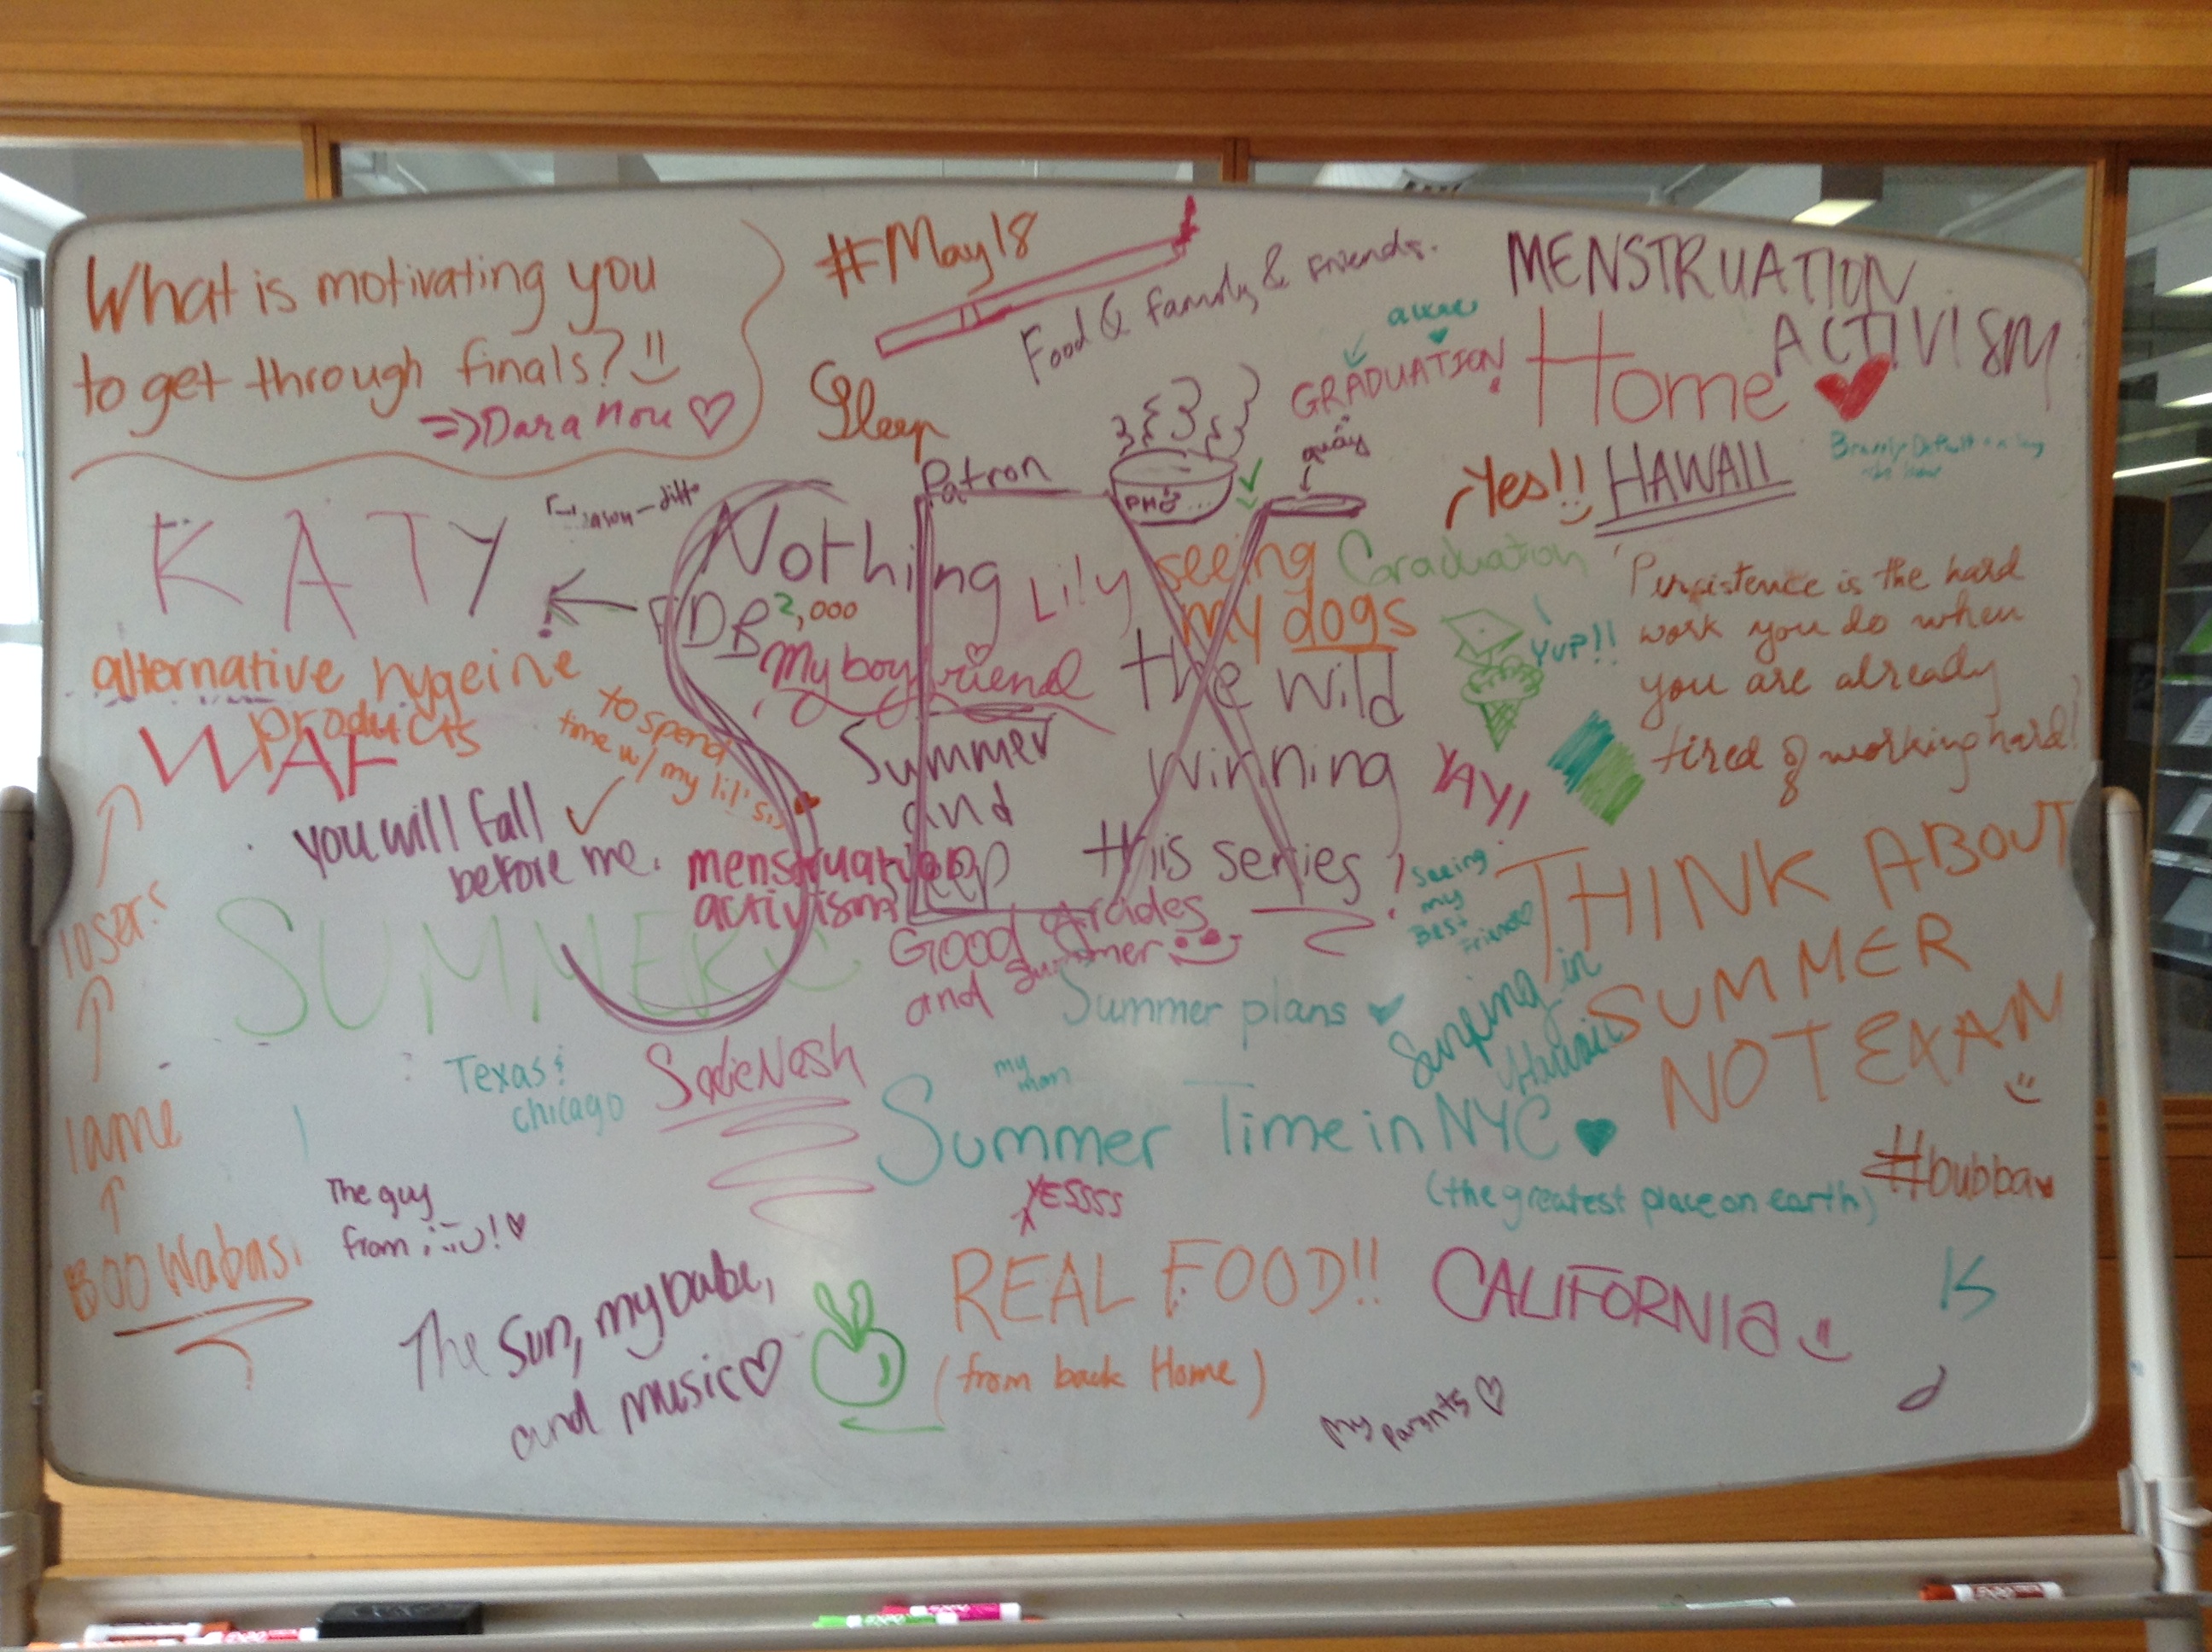 What is motivating you
to get through finals?
=> Dara Nou
#May18
Food & family & Friends.
Sleep
MENSTRUATION
ACTIVISM
GRADUATION
Home
Yes!!
HAWAII
Patron
PHO
SEX
KATY
Nothing
Lily
seeing
my dogs
Graduation
YUP!!
2,000
My boyfriend
the wild
alternative hygeine
products
WAF
to spend
time w/ my lil's
Summer
and
winning
this series!
YAY!
"Persistence is the hard
work you do when
you are already
tired of working hard!
you will fall
before me.
menstruation
activism
Good grades
and summer
seeing
my
Best
Friend
THINK ABOUT
SUMMER
NOT EXAM
losers
SUMMER
Summer plans
Surfing in
Hawaii
Texas &
Chicago
Sadie Nash
my
man
Summer Time in NYC
(the greatest place on earth)
#bubba
lame
The guy
from
YESSSS
BOO Wabasi
The sun, my babe,
and music
REAL FOOD!!
(from back Home)
CALIFORNIA
My parents